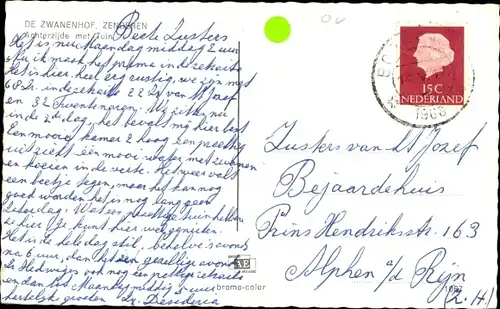 DE ZWANENHOF, ZENDEREN
Achterzijde met tuin
Beste Zusters
Het is nu Maandag middag 2 uur
en ik maak het prima in de retraite
Het is hier heel erg rustig, we zijn met
6 Pr. in de retraite 22 Zs v St Jozef
en 32 Twentenaren. Wij zitten
in de 2e dag, het bevalt mij hier best
Een mooie kamer 2 hoog een prachtig
uitzicht een mooie water met zwanen
en koeien in de verte. Het weer valt
een beetje tegen, maar het kan nog
goed worden het is nog lang geen
Zaterdag. Wat een prachtige tuin hebben
ze hier
Je kunt hier
Het is de hele dag stil, behalve 's avonds
na 6 uur, dan
een gezellige avond
Zr Hedwiges ook nog een prettige retraite
en dan tot Maandag middag 2 uur
hartelijke groeten Zr. Desideria
Zusters van St Jozef
Bejaardehuis
Prins Hendrikstr. 163
Alphen a/d Rijn
(Z.H)
15C
NEDERLAND
1968
bromo-color